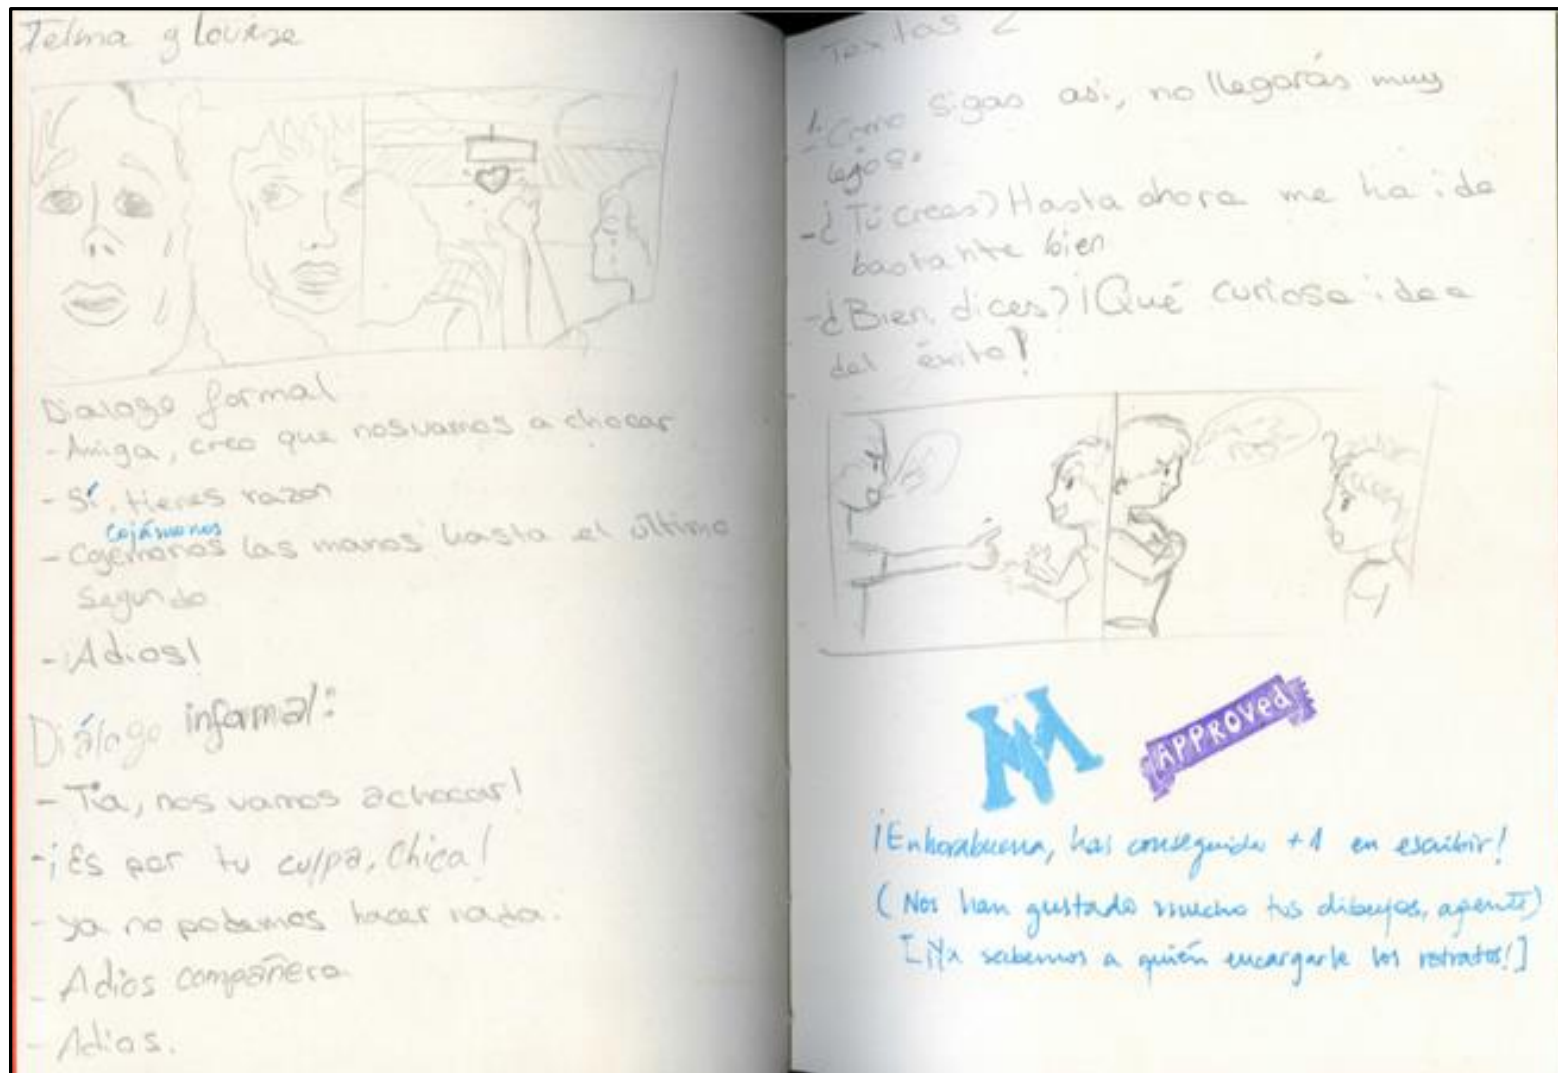 Telma y Louise
Dialogo formal
- Amiga, creo que nos vamos a chocar
- Sí, tienes razon
Cojámonos
- Cojemonos las manos hasta el último
segundo
- ¡Adios!
Diálogo informal:
- Tía, nos vamos a chocar!
- ¡Es por tu culpa, Chica!
- ya no podemos hacer nada.
- Adios compañera
- Adios.
Textos 2
1. Como sigas asi, no llegarás muy
lejos.
- ¿Tú crees? Hasta ahora me ha ido
bastante bien
- ¿Bien, dices? ¡Qué curiosa idea
del éxito!
APPROVED
¡Enhorabuena, has conseguido +1 en escribir!
(Nos han gustado mucho tus dibujos, agente)
[¡Ya sabemos a quién encargarle los retratos!]